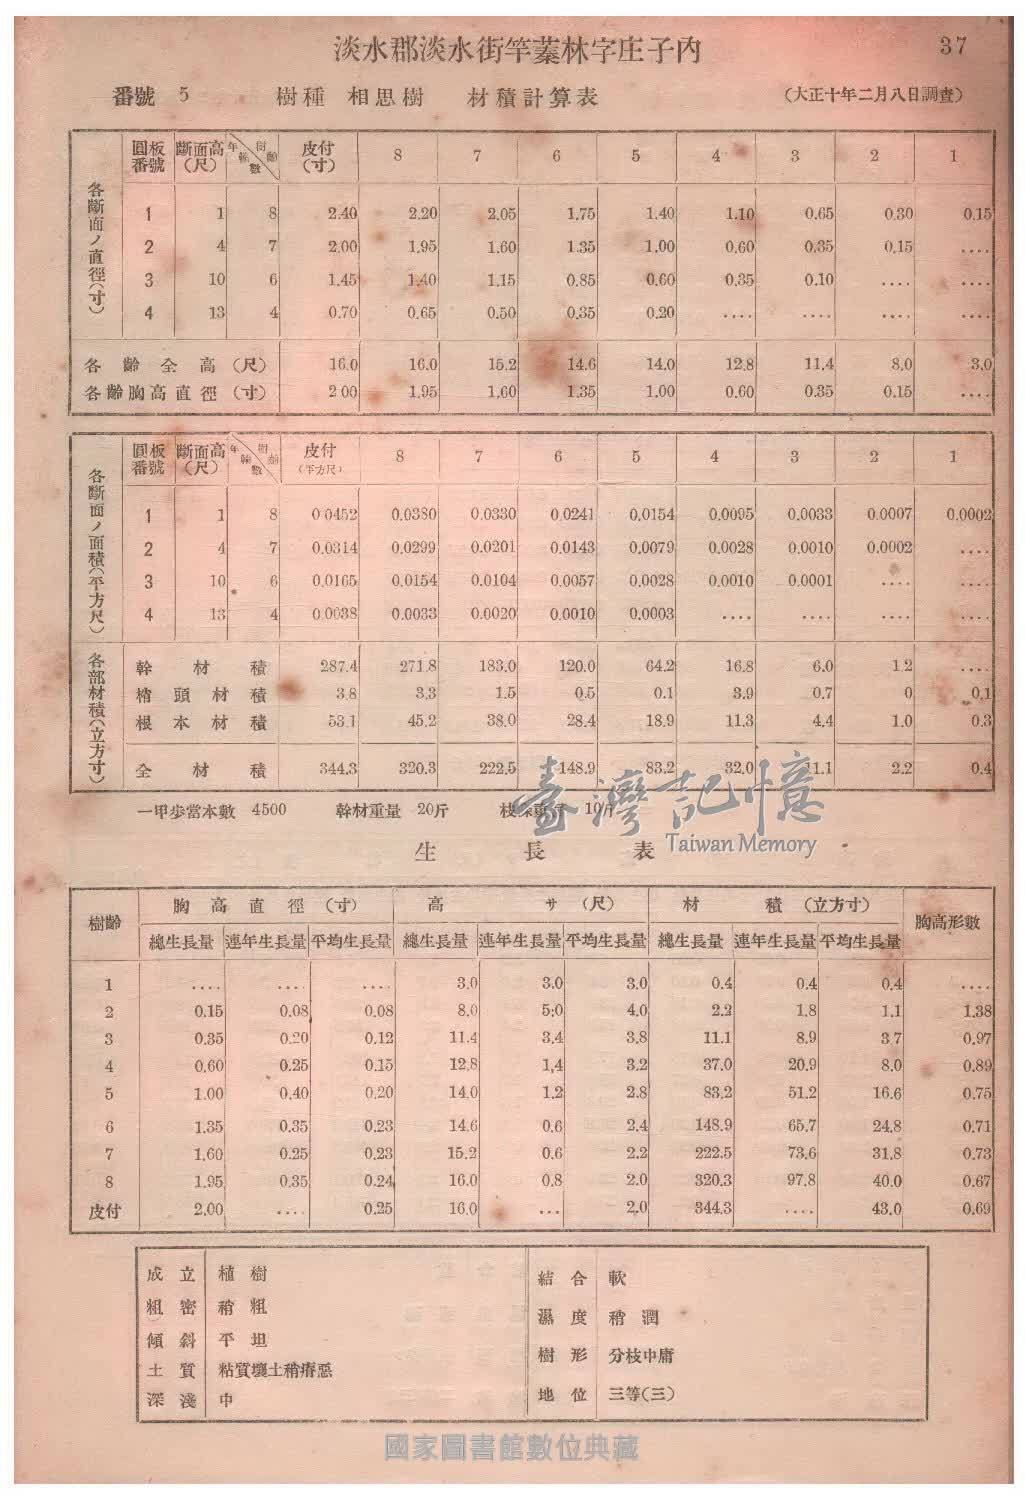 淡水郡淡水街竿蓁林字庄子內
37
番號 5 樹種 相思樹 材積計算表 (大正十年二月八日調查)
各斷面ノ直徑(寸)
圓板番號 斷面高(尺) 年輪數 樹齡 皮付(寸) 8 7 6 5 4 3 2 1
1 1 8 2.40 2.20 2.05 1.75 1.40 1.10 0.65 0.30 0.15
2 4 7 2.00 1.95 1.60 1.35 1.00 0.60 0.35 0.15 ....
3 10 6 1.45 1.40 1.15 0.85 0.60 0.35 0.10 .... ....
4 13 4 0.70 0.65 0.50 0.35 0.20 .... .... .... ....
各齡全高(尺) 16.0 16.0 15.2 14.6 14.0 12.8 11.4 8.0 3.0
各齡胸高直徑(寸) 2.00 1.95 1.60 1.35 1.00 0.60 0.35 0.15 ....
各斷面ノ面積(平方尺)
圓板番號 斷面高(尺) 年輪數 樹齡 皮付(平方尺) 8 7 6 5 4 3 2 1
1 1 8 0.0452 0.0380 0.0330 0.0241 0.0154 0.0095 0.0033 0.0007 0.0002
2 4 7 0.0314 0.0299 0.0201 0.0143 0.0079 0.0028 0.0010 0.0002 ....
3 10 6 0.0165 0.0154 0.0104 0.0057 0.0028 0.0010 0.0001 .... ....
4 13 4 0.0038 0.0033 0.0020 0.0010 0.0003 .... .... .... ....
各部材積(立方寸)
幹材積 287.4 271.8 183.0 120.0 64.2 16.8 6.0 1.2 ....
梢頭材積 3.8 3.3 1.5 0.5 0.1 3.9 0.7 0 0.1
根本材積 53.1 45.2 38.0 28.4 18.9 11.3 4.4 1.0 0.3
全材積 344.3 320.3 222.5 148.9 83.2 32.0 11.1 2.2 0.4
一甲步當本數 4500 幹材重量 20斤 枝條重量 10斤
臺灣記憶
Taiwan Memory
生長表
樹齡 胸高直徑(寸) 高サ(尺) 材積(立方寸) 胸高形數
總生長量 連年生長量 平均生長量 總生長量 連年生長量 平均生長量 總生長量 連年生長量 平均生長量
1 .... .... .... 3.0 3.0 3.0 0.4 0.4 0.4 ....
2 0.15 0.08 0.08 8.0 5.0 4.0 2.2 1.8 1.1 1.38
3 0.35 0.20 0.12 11.4 3.4 3.8 11.1 8.9 3.7 0.97
4 0.60 0.25 0.15 12.8 1.4 3.2 37.0 20.9 8.0 0.89
5 1.00 0.40 0.20 14.0 1.2 2.8 83.2 51.2 16.6 0.75
6 1.35 0.35 0.23 14.6 0.6 2.4 148.9 65.7 24.8 0.71
7 1.60 0.25 0.23 15.2 0.6 2.2 222.5 73.6 31.8 0.73
8 1.95 0.35 0.24 16.0 0.8 2.0 320.3 97.8 40.0 0.67
皮付 2.00 .... 0.25 16.0 ... 2.0 344.3 .... 43.0 0.69
成立 植樹
粗密 稍粗
傾斜 平坦
土質 粘質壤土稍瘠惡
深淺 中
結合 軟
濕度 稍潤
樹形 分枝中庸
地位 三等(三)
國家圖書館數位典藏